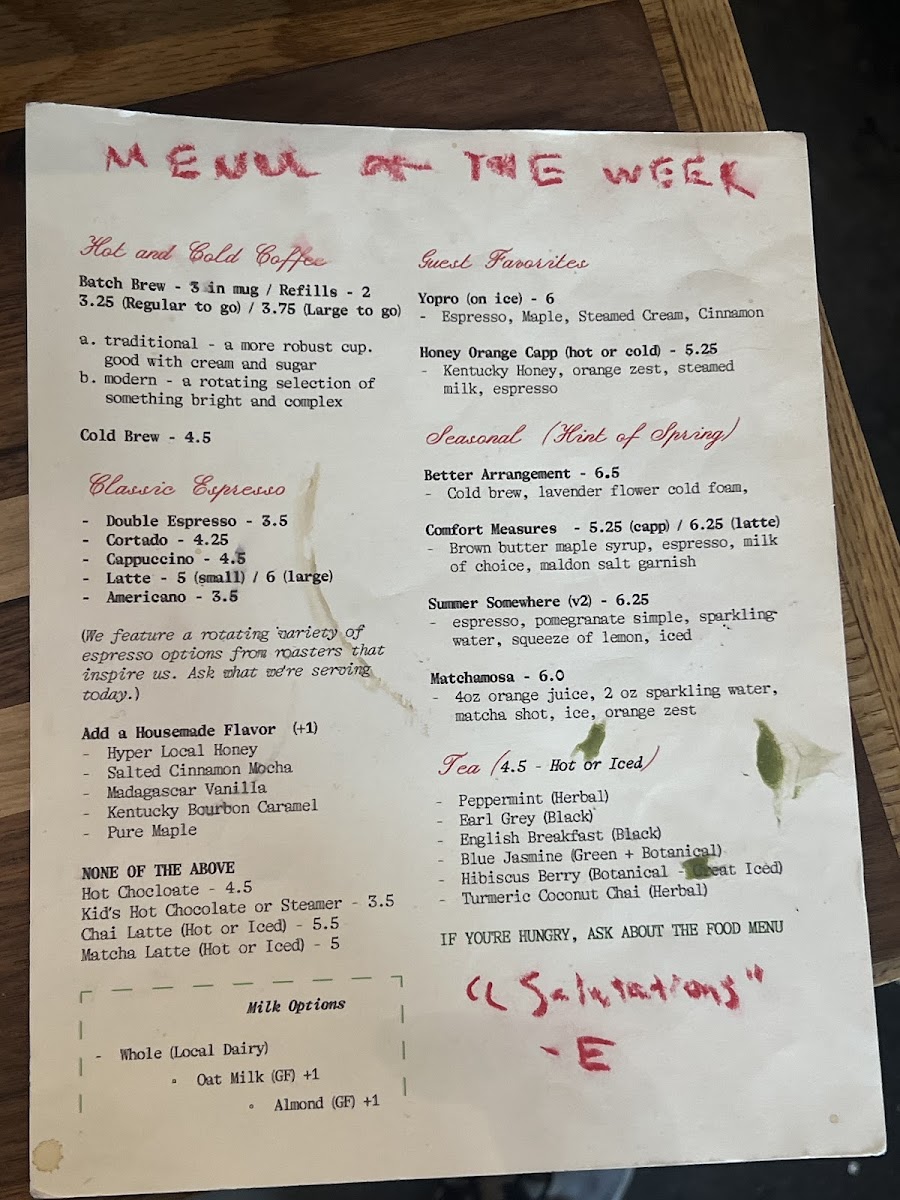 MENU OF THE WEEK
Hot and Cold Coffee
Batch Brew - 3 in mug / Refills - 2
3.25 (Regular to go) / 3.75 (Large to go)
a. traditional - a more robust cup.
good with cream and sugar
b. modern - a rotating selection of
something bright and complex
Cold Brew - 4.5
Classic Espresso
- Double Espresso - 3.5
- Cortado - 4.25
- Cappuccino - 4.5
- Latte - 5 (small) / 6 (large)
- Americano - 3.5
(We feature a rotating variety of
espresso options from roasters that
inspire us. Ask what we're serving
today.)
Add a Housemade Flavor (+1)
- Hyper Local Honey
- Salted Cinnamon Mocha
- Madagascar Vanilla
- Kentucky Bourbon Caramel
- Pure Maple
NONE OF THE ABOVE
Hot Chocloate - 4.5
Kid's Hot Chocolate or Steamer - 3.5
Chai Latte (Hot or Iced) - 5.5
Matcha Latte (Hot or Iced) - 5
Milk Options
- Whole (Local Dairy)
▫ Oat Milk (GF) +1
▫ Almond (GF) +1
Guest Favorites
Yopro (on ice) - 6
- Espresso, Maple, Steamed Cream, Cinnamon
Honey Orange Capp (hot or cold) - 5.25
- Kentucky Honey, orange zest, steamed
milk, espresso
Seasonal (Hint of Spring)
Better Arrangement - 6.5
- Cold brew, lavender flower cold foam,
Comfort Measures - 5.25 (capp) / 6.25 (latte)
- Brown butter maple syrup, espresso, milk
of choice, maldon salt garnish
Summer Somewhere (v2) - 6.25
- espresso, pomegranate simple, sparkling
water, squeeze of lemon, iced
Matchamosa - 6.0
- 4oz orange juice, 2 oz sparkling water,
matcha shot, ice, orange zest
Tea (4.5 - Hot or Iced)
- Peppermint (Herbal)
- Earl Grey (Black)
- English Breakfast (Black)
- Blue Jasmine (Green + Botanical)
- Hibiscus Berry (Botanical - Great Iced)
- Turmeric Coconut Chai (Herbal)
IF YOU'RE HUNGRY, ASK ABOUT THE FOOD MENU
"Salutations"
- E